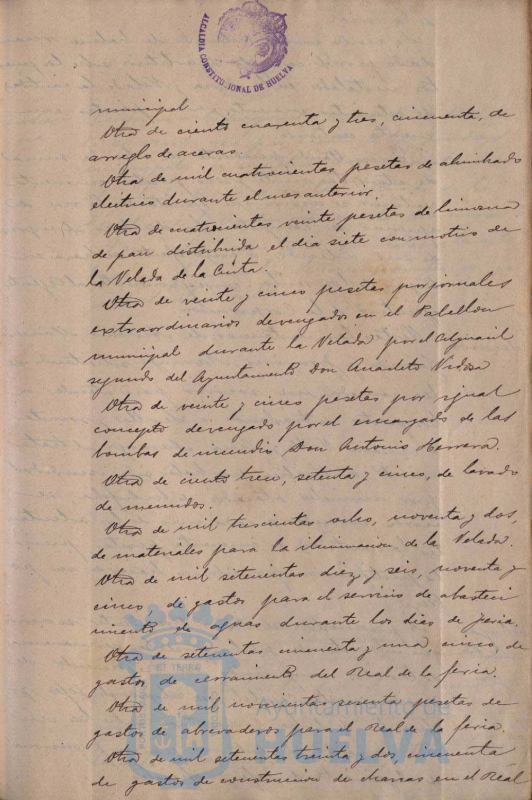 ALCALDIA CONSTITUCIONAL DE HUELVA
municipal
Otra de ciento cuarenta y tres, cincuenta, de
arreglo de aceras.
Otra de mil cuatrocientas pesetas de alumbrado
eléctrico durante el mes anterior.
Otra de cuatrocientas veinte pesetas de limosna
de pan distribuida el dia siete con motivo de
la Velada de la Cinta.
Otra de veinte y cinco pesetas por jornales
extraordinarios devengados en el Pabellon
municipal durante la Velada por el Alguacil
segundo del Ayuntamiento Don Anacleto
Otra de veinte y cinco pesetas por igual
concepto devengado por el encargado de las
bombas de incendio Don Antonio Herrera.
Otra de ciento trece, setenta y cinco, de lavado
de menudos.
Otra de mil trescientas ocho, noventa y dos,
de materiales para la iluminacion de la Velada.
Otra de mil setecientas diez y seis, noventa y
cinco, de gastos para el servicio de abasteci
miento de aguas durante los dias de feria.
Otra de setecientas cincuenta y una, cinco, de
gastos de cerramiento del Real de la feria.
Otra de mil novecientas sesenta pesetas de
gastos de abrevaderos para el Real de la feria.
Otra de mil setecientas treinta y dos, cincuenta
de gastos de construccion de charcas en el Real
Ayuntamiento de
HUELVA